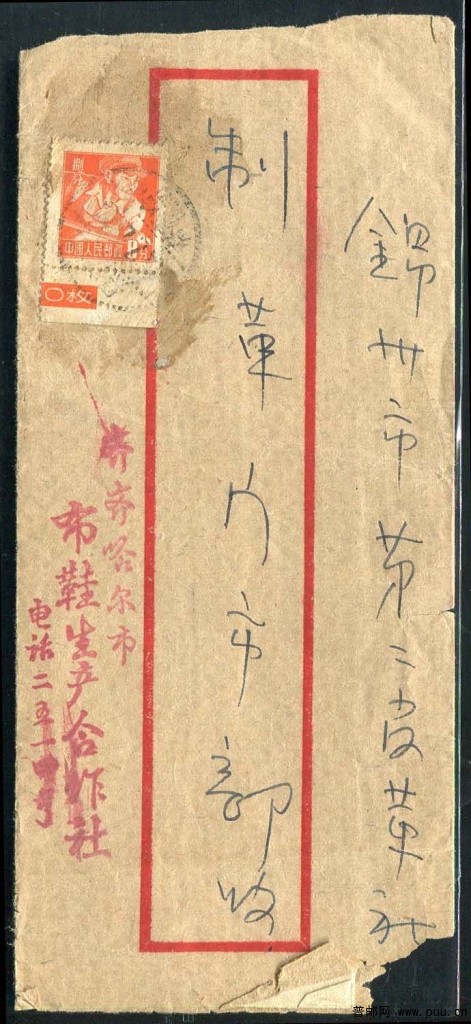 錦州市第二皮革社
制革门市部收
捌分
中國人民郵政 8分
0枚
齐齐哈尔市
布鞋生产合作社
电话二五一号
普邮网 www.puu.cn